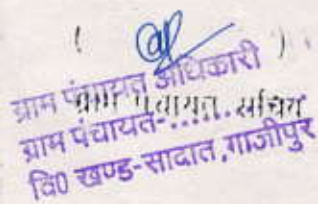 ( )
ग्राम पंचायत अधिकारी
ग्राम पंचायत सचिव
ग्राम पंचायत-........
वि0 खण्ड-सादात,गाजीपुर